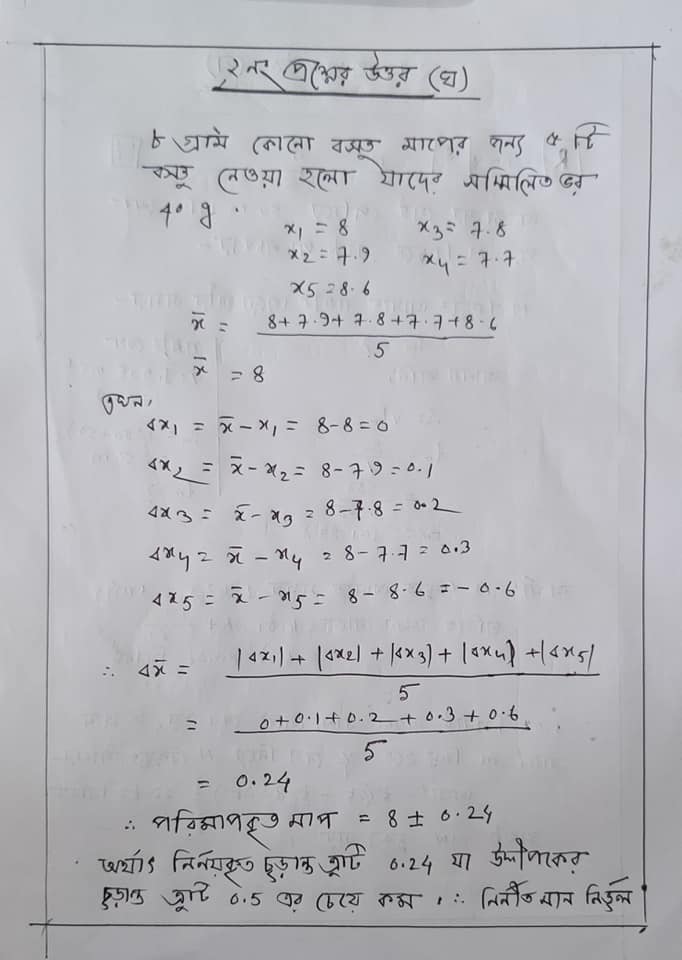 ২নং প্রশ্নের উত্তর (ঘ)
৮ গ্রাম কোনো বস্তু মাপের জন্য ৫ টি
বস্তু নেওয়া হলো যাদের সম্মিলিত ভর
40 g .
x₁ = 8 x₃ = 7.8
x₂ = 7.9 x₄ = 7.7
x₅ = 8.6
x̄ = (8 + 7.9 + 7.8 + 7.7 + 8.6) / 5
x̄ = 8
এখন,
Δx₁ = x̄ - x₁ = 8 - 8 = 0
Δx₂ = x̄ - x₂ = 8 - 7.9 = 0.1
Δx₃ = x̄ - x₃ = 8 - 7.8 = 0.2
Δx₄ = x̄ - x₄ = 8 - 7.7 = 0.3
Δx₅ = x̄ - x₅ = 8 - 8.6 = - 0.6
∴ Δx̄ = (|Δx₁| + |Δx₂| + |Δx₃| + |Δx₄| + |Δx₅|) / 5
= (0 + 0.1 + 0.2 + 0.3 + 0.6) / 5
= 0.24
∴ পরিমাপকৃত মাপ = 8 ± 0.24
অর্থাৎ নির্ণয়কৃত চূড়ান্ত ত্রুটি 0.24 যা উদ্দীপকের
চূড়ান্ত ত্রুটি 0.5 এর চেয়ে কম , ∴ নির্ণীত মান নির্ভুল